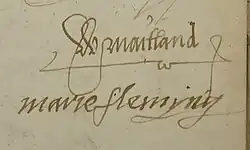 W maitland
marie fleming